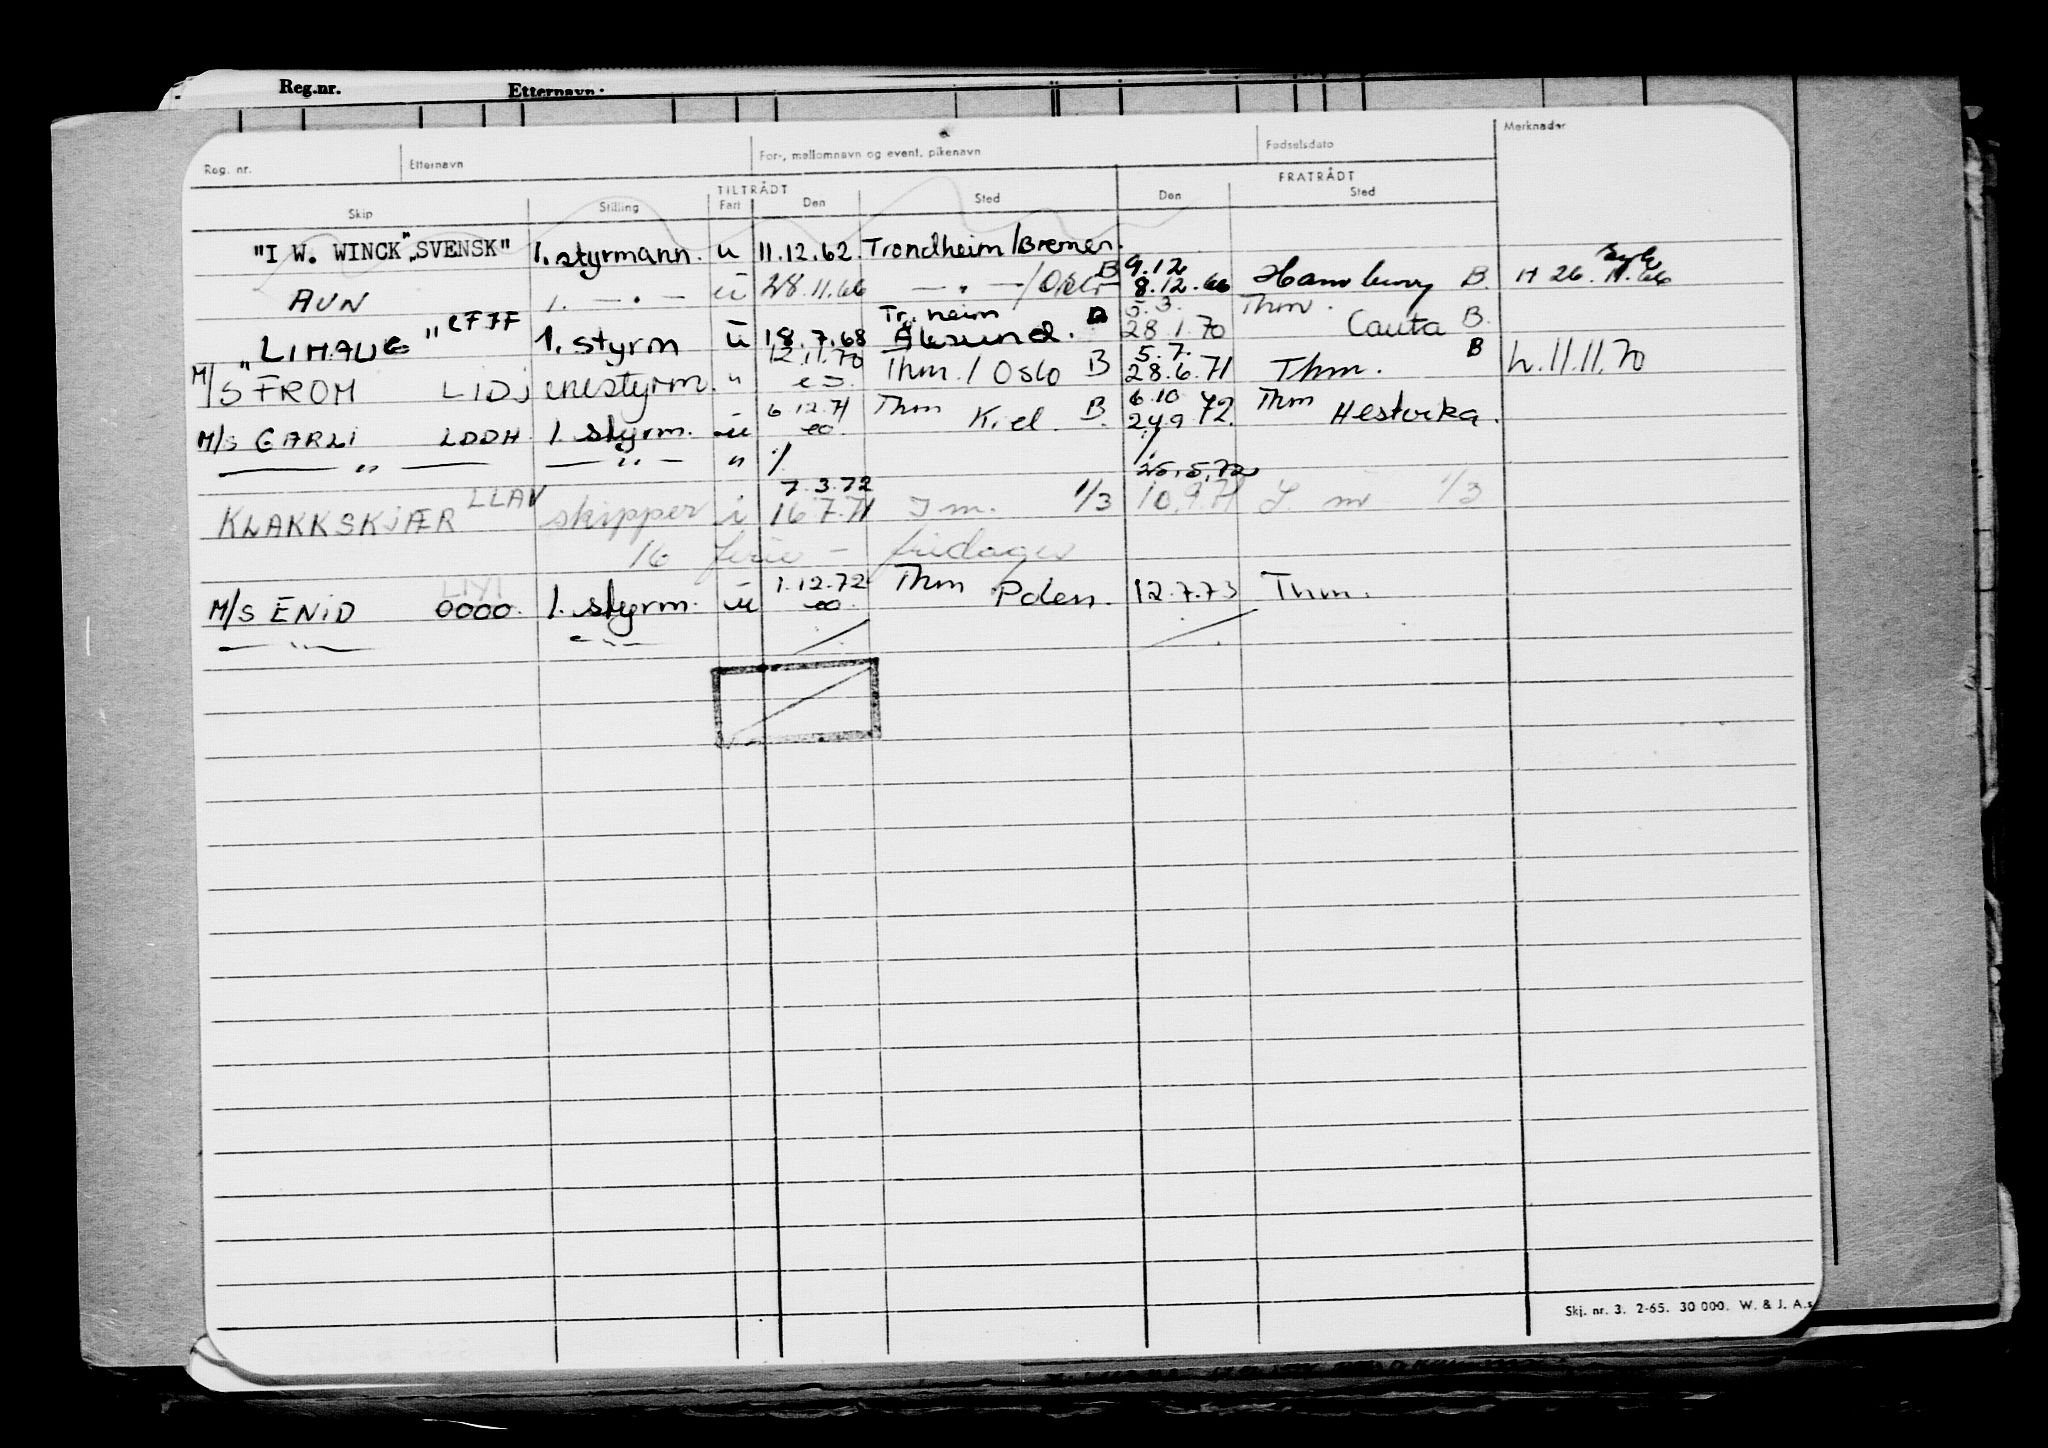 Reg.nr. Etternavn:
Reg. nr. Etternavn For-, mellomnavn og event. pikenavn Fødselsdato Merknader
TILTRÅDT FRATRÅDT
Skip Stilling Fart Den Sted Den Sted
"I W. WINCK" "SVENSK" 1. styrmann. u 11.12.62. Trondheim/Bremen.
9.12
AUN 1. — " — u 28.11.66 — " — / Oslo B 8.12.66 Hamburg B. H 26.11.66
Tr.heim 5.3. Thm.
"LIHAUG" 1. styrm u 18.7.68 Ålesund. B 28.1.70 Ceuta B.
12.11.70 5.7. B
M/S FROM LIDJ enestyrm. " Thm. / Oslo B 28.6.71 Thm. h. 11.11.70
6.12.71 Thm 6.10 Thm
M/S GARLI LDDH 1. styrm. u Kiel. B. 24.9 72.
— " — — " — " 7.3.72 25.5.72
KLAKKSKJÆR LLAV skipper i 16.7.71 1/3 10.9.71 1/3
16 ferie - fridager
LIYI 1.12.72 Thm
M/S ENID 0000. 1. styrm. u Polen. 12.7.73 Thm.
— " — — " —
Skj. nr. 3. 2-65. 30 000. W. & J. A.s